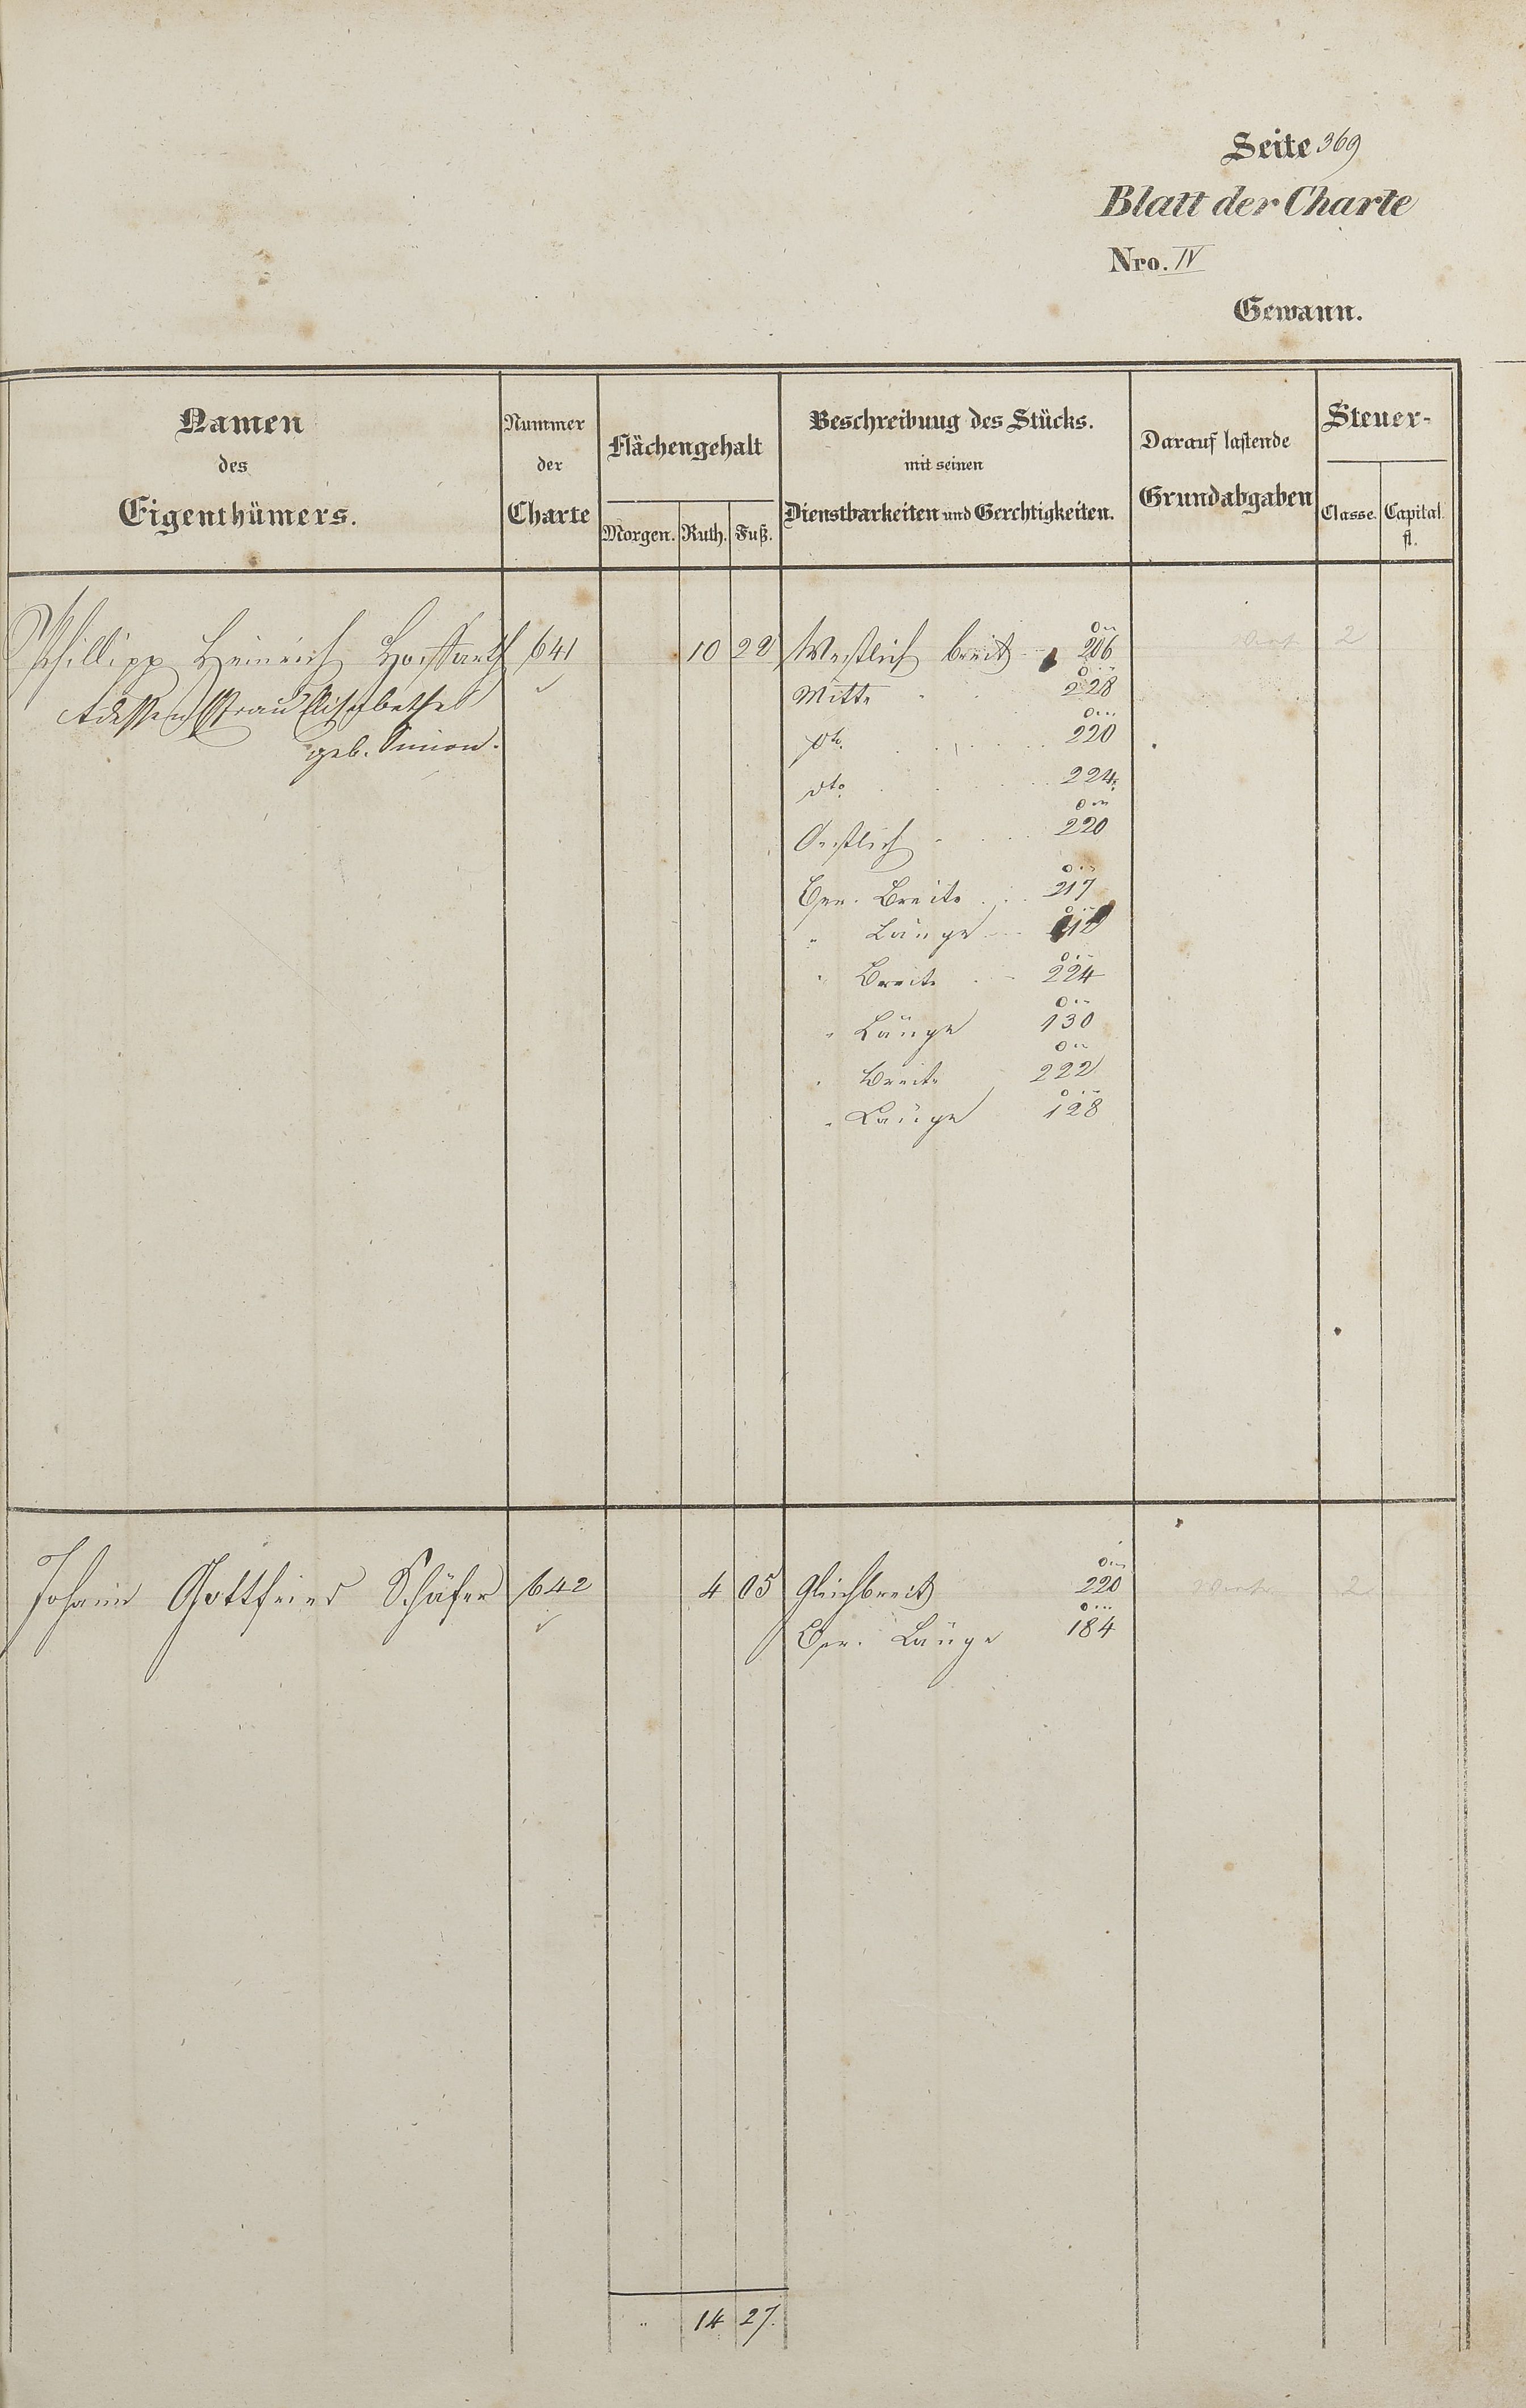 Seite 369
Blatt der Charte
Nro. IV
Gewann.
Namen
des
Eigenthümers.
Nummer
der
Charte
Flächengehalt
Morgen. Ruth. Fuß.
Beschreibung des Stücks.
mit seinen
Dienstbarkeiten und Gerechtigkeiten.
Darauf lastende
Grundabgaben
Steuer-
Classe. Capital.
fl.
Phillipp Heinrich 641 10 22 Westlich breit 206
Frau Elisabetha Mitte 228
geb. Simon. dto. 220
dto 224
Oestlich 220
Gem. Breite 217
" Länge
" Breite 224
" Länge 130
" Breite 222
" Länge 128
2
Johann Gottfried Schäfer 642 4 05 Gleichbreit 220 2
Gem. Länge 184
" 14 27.